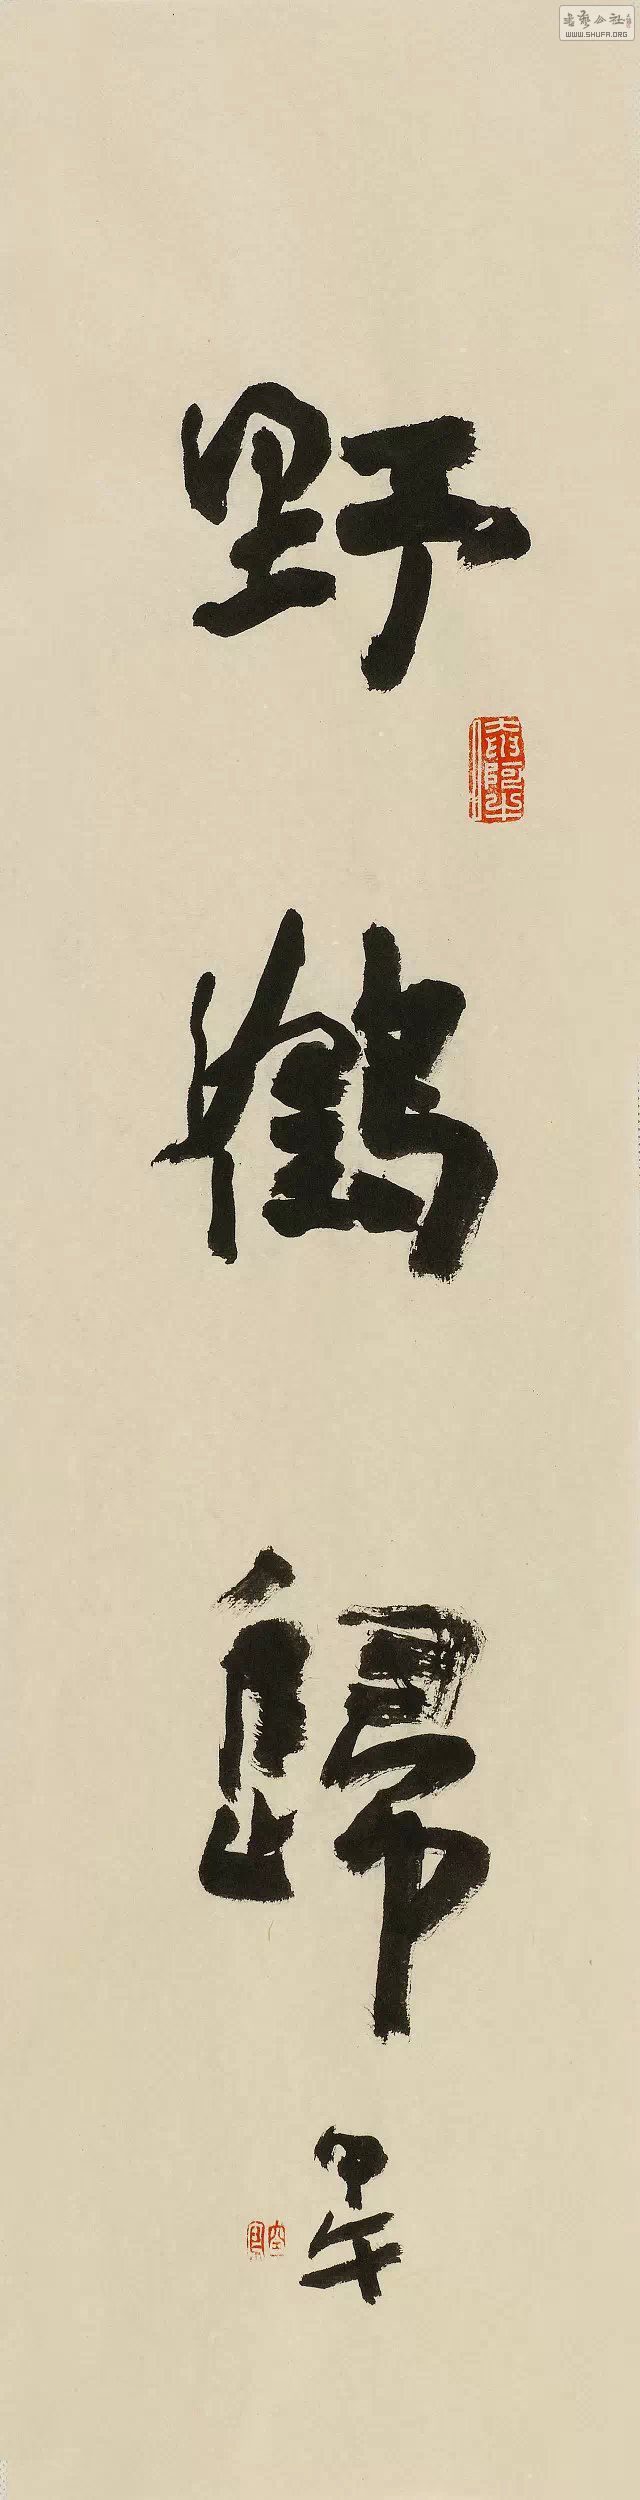 野鶴歸
甲午
书艺公社
WWW.SHUFA.ORG